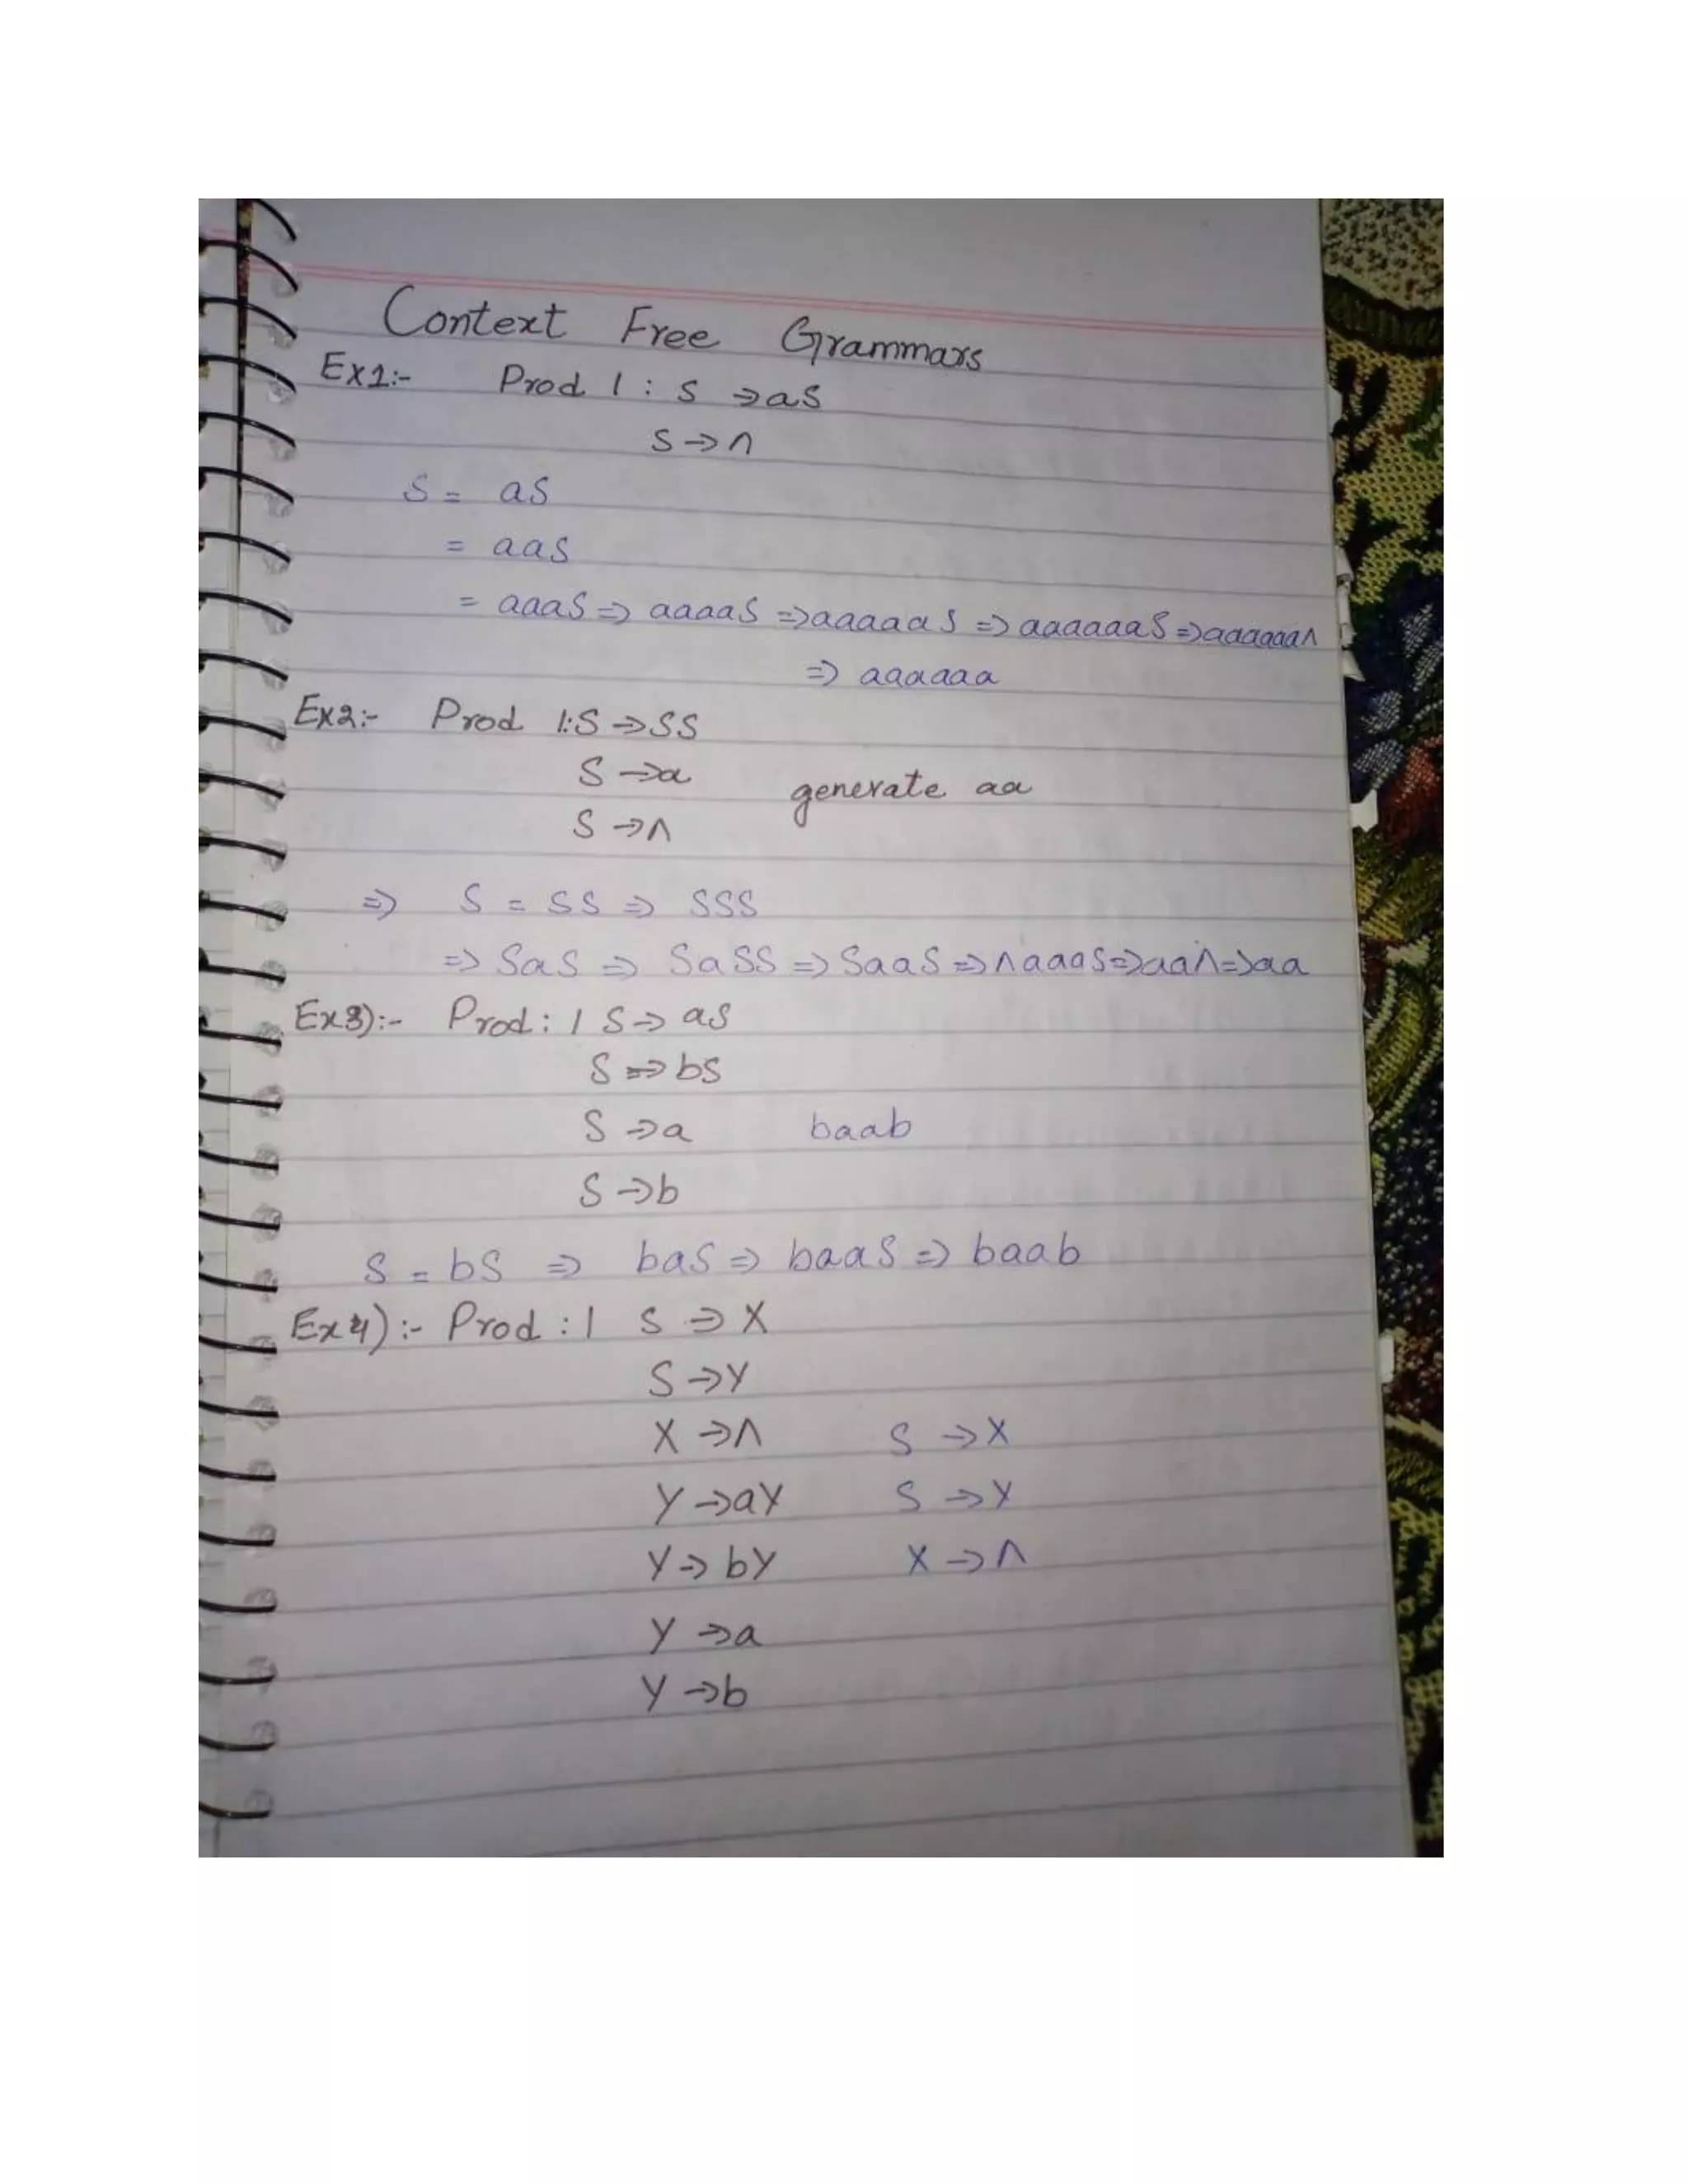 Context Free Grammars
Ex1:- Prod 1 : S ⇒ aS
S → Λ
S = aS
= aaS
= aaaS ⇒ aaaaS ⇒ aaaaaS ⇒ aaaaaaS ⇒ aaaaaaΛ
⇒ aaaaaa
Ex2:- Prod 1: S → SS
S → a generate aa
S → Λ
⇒ S = SS ⇒ SSS
⇒ SaS ⇒ SaSS ⇒ SaaS ⇒ ΛaaaS ⇒ aaΛ ⇒ aa
Ex3):- Prod : 1 S → aS
S ⇒ bS
S → a baab
S → b
S = bS ⇒ baS ⇒ baaS ⇒ baab
Ex4):- Prod : 1 S → X
S → Y
X → Λ S → X
Y → aY S → Y
Y → bY X → Λ
Y → a
Y → b